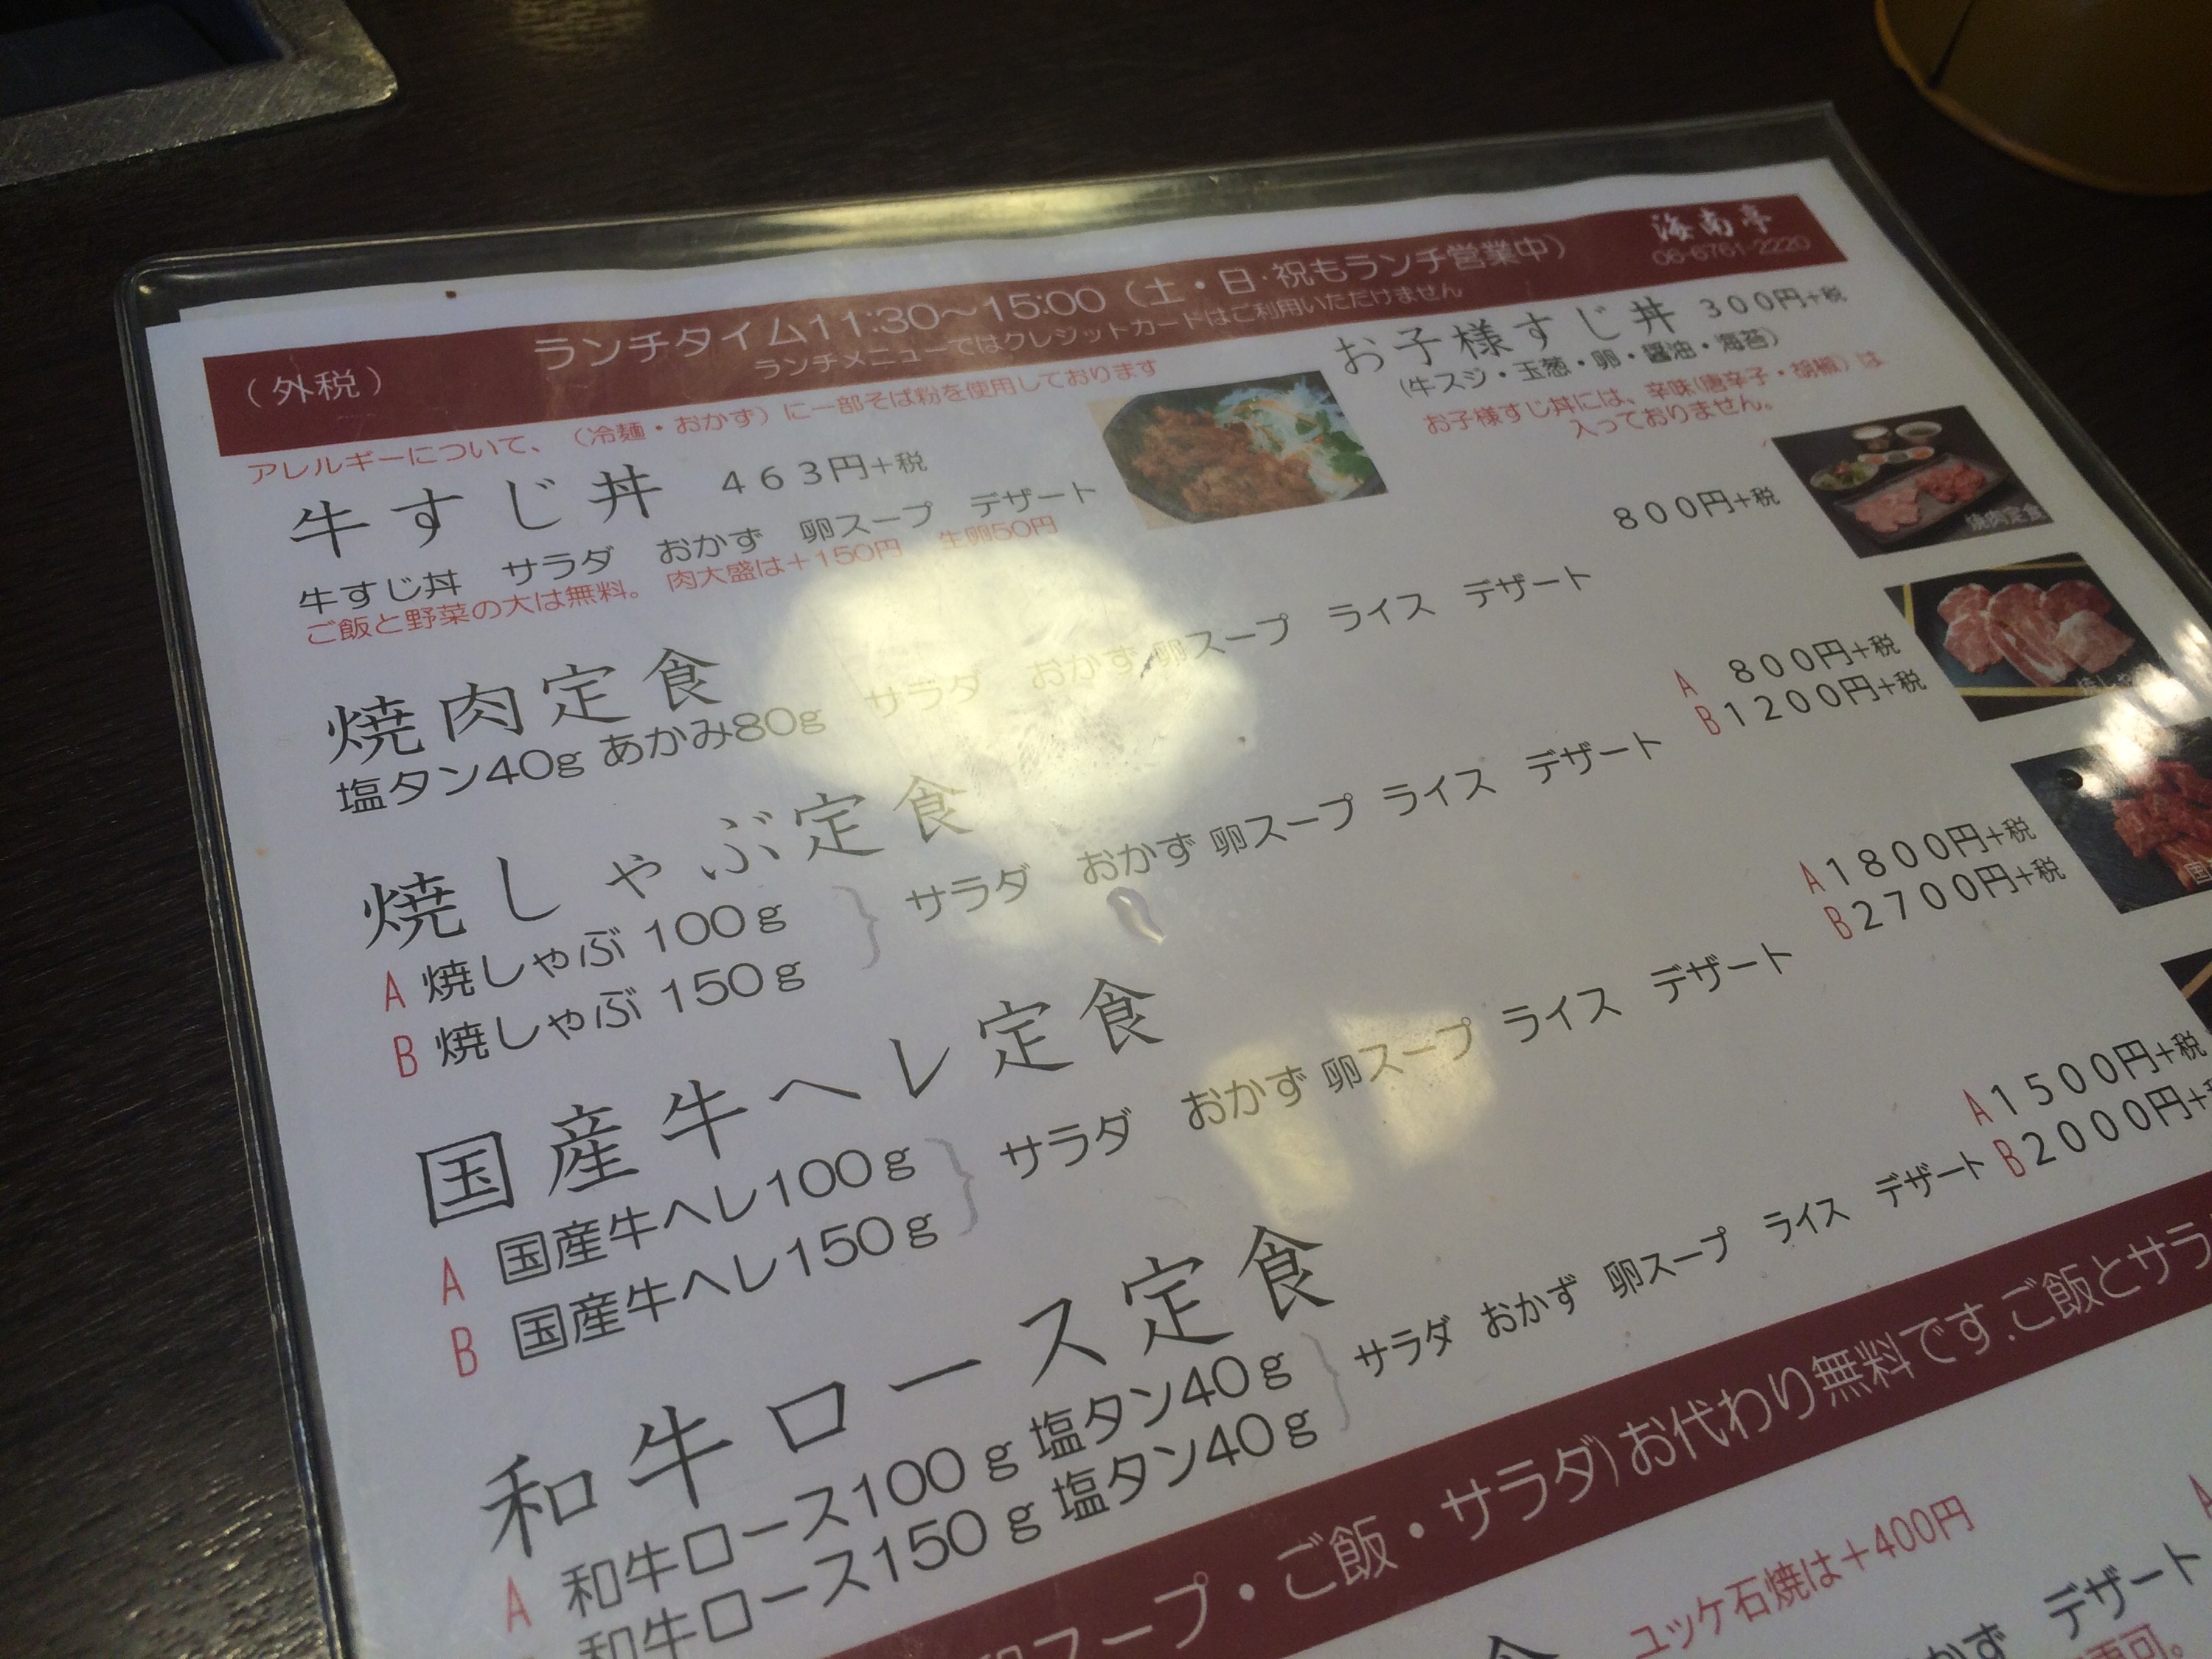 海南亭
06-6761-2220
(外税)
ランチタイム11:30～15:00（土・日・祝もランチ営業中）
ランチメニューではクレジットカードはご利用いただけません
アレルギーについて、（冷麺・おかず）に一部そば粉を使用しております
牛すじ丼 463円+税
牛すじ丼 サラダ おかず 卵スープ デザート
ご飯と野菜の大は無料。 肉大盛は+150円 生卵50円
お子様すじ丼 300円+税
(牛スジ・玉葱・卵・醤油・海苔)
お子様すじ丼には、辛味(唐辛子・胡椒)は
入っておりません。
焼肉定食 800円+税
塩タン40g あかみ80g サラダ おかず 卵スープ ライス デザート
焼肉定食
焼しゃぶ定食
A 800円+税
B 1200円+税
A 焼しゃぶ 100g
B 焼しゃぶ 150g
サラダ おかず 卵スープ ライス デザート
国産牛ヘレ定食
A 1800円+税
B 2700円+税
A 国産牛ヘレ100g
B 国産牛ヘレ150g
サラダ おかず 卵スープ ライス デザート
和牛ロース定食
A 1500円+税
B 2000円+
A 和牛ロース100g 塩タン40g
和牛ロース150g 塩タン40g
サラダ おかず 卵スープ ライス デザート
卵スープ・ご飯・サラダ)お代わり無料です.ご飯とサラ
ユッケ石焼は+400円
デザート